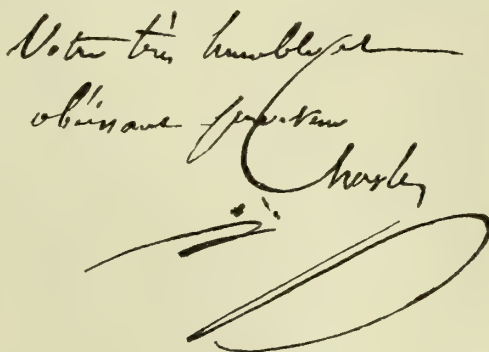 Votre très humble et
obéissant serviteur
Chasles